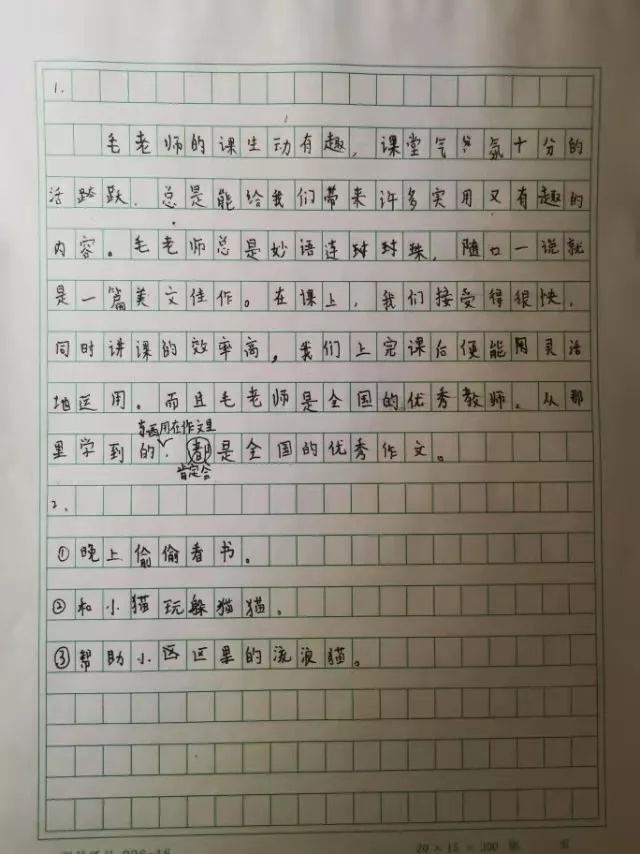 1.
毛老师的课生动有趣，课堂气氛十分的
活跃，总是能给我们带来许多实用又有趣的
内容。毛老师总是妙语连珠，随口一说就
是一篇美文佳作。在课上，我们接受得很快，
同时讲课的效率高，我们上完课后便能用灵活
地运用。而且毛老师是全国的优秀教师，从那
东西用在作文里
里学到的，都是全国的优秀作文。
肯定会
2.
①晚上偷偷看书。
②和小猫玩躲猫猫。
③帮助小区里的流浪猫。
20×15=300